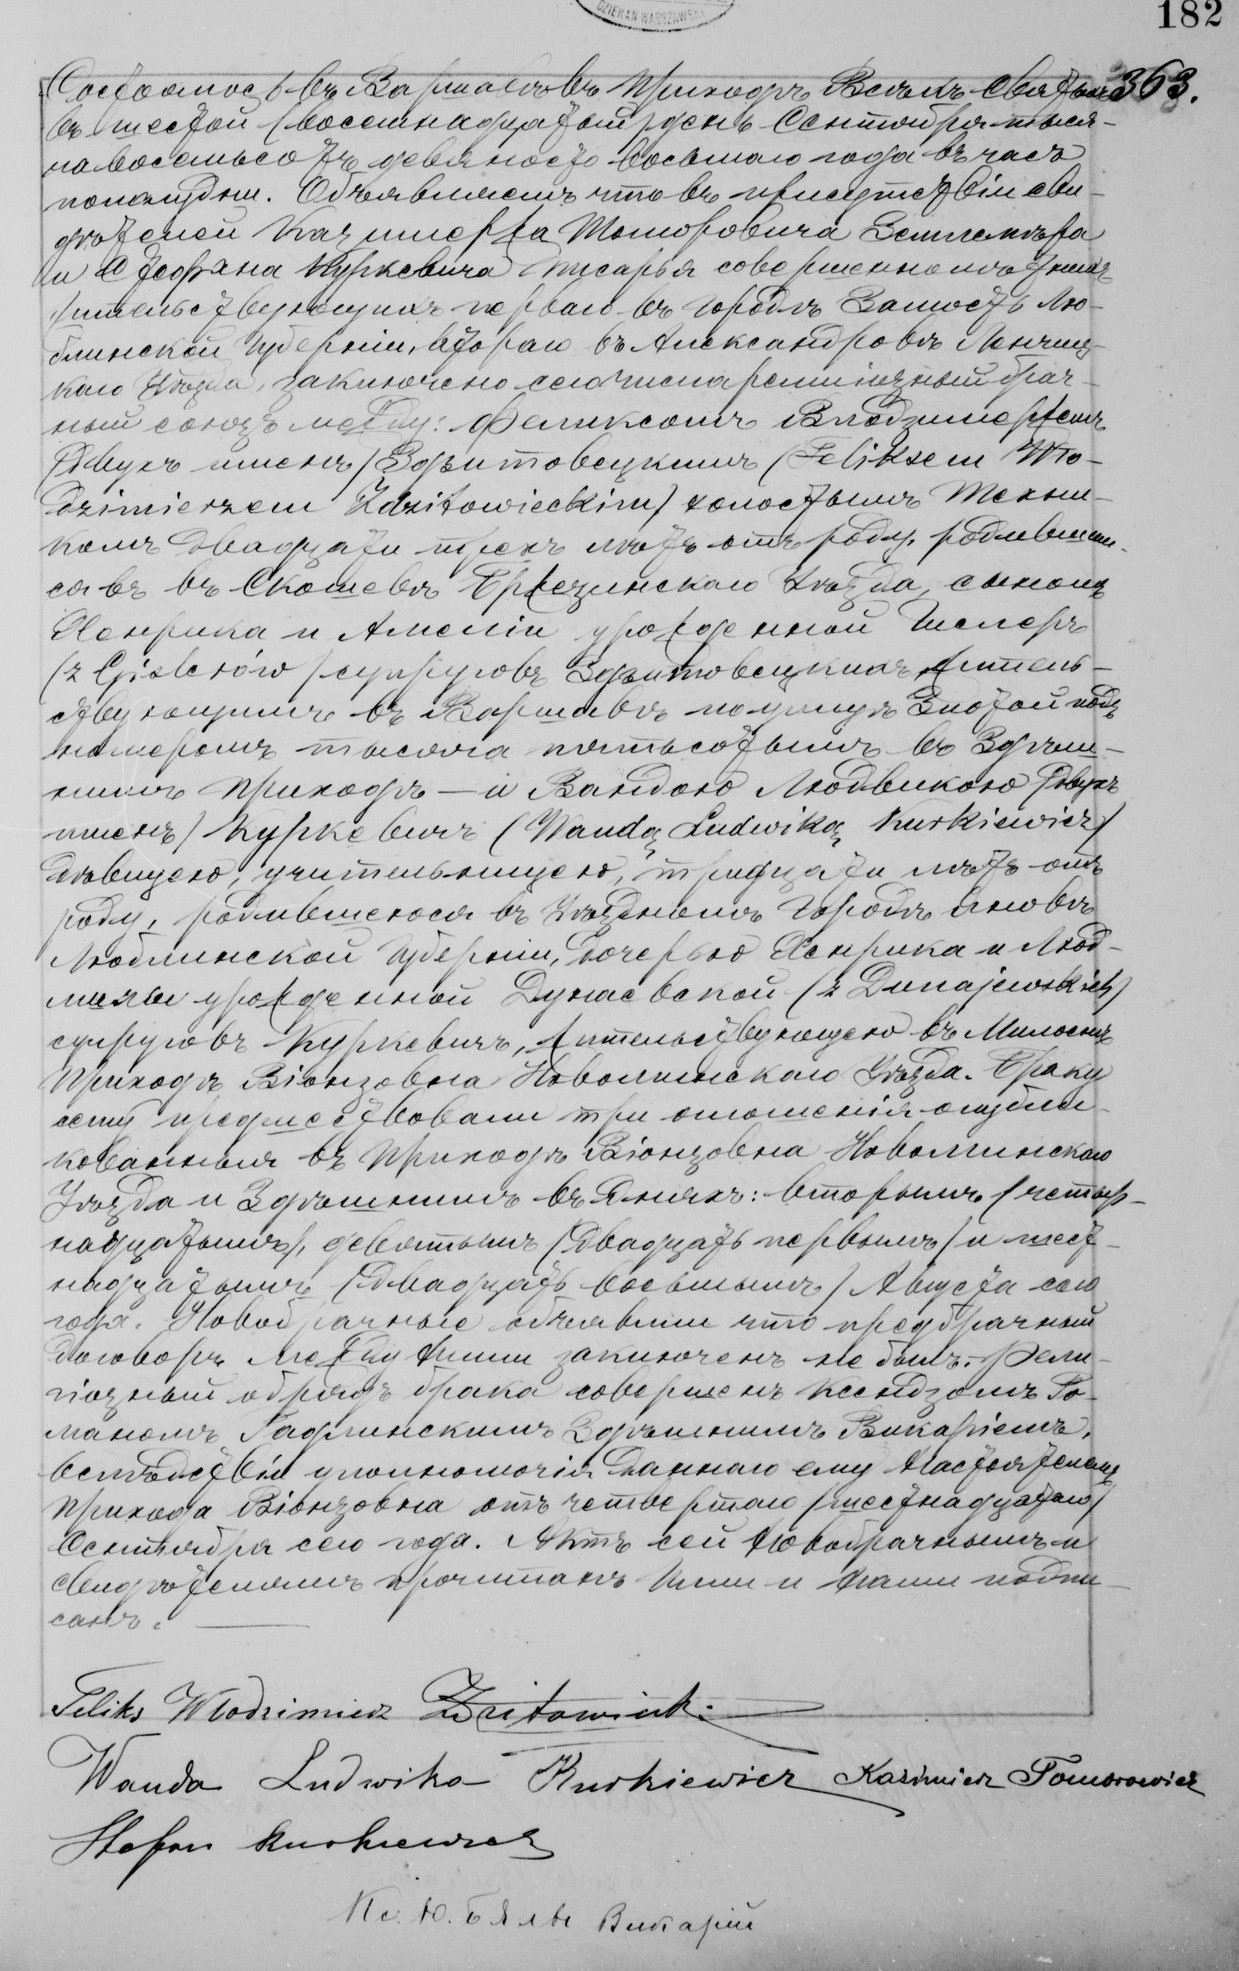 DZIEKAN WARSZAWSKI
182
363.
Состоялось въ Варшавѣ въ приходѣ Всѣхъ Святыхъ
въ шестой /восемнадцатый/ день Сентября тыся-
ча восемьсотъ девяносто восьмаго года въ часъ
пополудни. Объявляемъ что въ присутствіи сви-
дѣтелей Казимержа Томоровича Землемѣра
и Стефана Куркевича писаря совершеннолѣтнихъ
/жительствующихъ перваго въ городѣ Замость Лю-
блинской Губерніи, втораго въ Александровѣ Ленчиц-
каго Уѣзда, заключено сего числа религіозный брач-
ный союзъ между: Феликсомъ Влодзимержемъ
/двухъ именъ/ Здзитовецкимъ /Feliksem Wło-
dzimierzem Zdzitowieckim/ холостымъ Техни-
комъ двадцати трехъ лѣтъ отъ роду, родившим-
ся въ въ Скошевѣ Брезинскаго Уѣзда, сыномъ
Генрика и Амеліи урожденной Гислеръ
/z Gislerów/ супруговъ Здзитовецкихъ, житель-
ствующимъ въ Варшавѣ по улицѣ Злотой подъ
номеромъ тысяча пятьсотымъ въ Здѣш-
нимъ приходѣ — и Вандою Людвикою /двухъ
именъ/ Куркевичъ /Wandą Ludwiką Kurkiewicz/
дѣвицею, учительницею, тридцати лѣтъ отъ
роду, родившеюся въ Уѣздномъ городѣ Яновѣ
Люблинской Губерніи, дочерью Генрика и Люд-
милы урожденной Дунаевской /z Dunajewskich/
супруговъ Куркевичъ, жительствующею въ Милоснѣ
прихода Віонзовна Новоминскаго Уѣзда. Браку
сему предшествовали три оглашенія опубли-
кованныя въ приходѣ Віонзовна Новоминскаго
Уѣзда и Здѣшнимъ въ дняхъ: вторымъ /четыр-
надцатымъ/, девятымъ /двадцать первымъ/ и шест-
надцатымъ /двадцать восьмымъ/ Августа сего
года. Новобрачные объявили что предбрачный
договоръ между ними заключенъ не былъ. Рели-
гіозный обрядъ брака совершенъ Ксендзомъ Ро-
маномъ Здѣшнимъ Викаріемъ,
вслѣдствіи уполномочія даннаго ему Настоятелемъ
прихода Віонзовна отъ четвертаго /шестнадцатаго/
Сентября сего года. Актъ сей Новобрачнымъ и
свидѣтелямъ прочитанъ Ими и Нами подпи-
санъ.
Feliks Włodzimierz Zdzitowiecki
Wanda Ludwika Kurkiewicz Kazimierz Tomorowicz
Stefan Kurkiewicz
Кс. Ю. Викарій